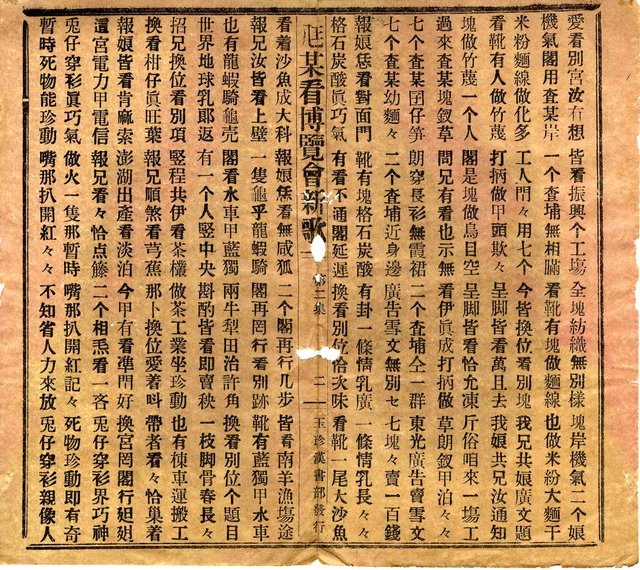 愛看別宮汝有想 皆看振興个工塲 全塊紡織無別樣 塊岸機氣二個娘
機氣閣用查某岸 一个查埔無相瞞 看靴有塊做麵線 也做米粉大麵干
米粉麵線做化多 工人門々用七个 今皆換位看別塊 我兄共娘廣文題
看靴有人做竹蔑 打柄做甲頭欺々 呈脚皆看萬且去 我娘共兄汝通知
塊做竹蔑一个人 閣是塊做鳥目空 呈脚皆看恰允凍 斤俗咱來一塲工
過來查某塊釵草 問兄有看也示無 看伊眞成打柄做 草朗釵甲泊々々
七个查某囝仔笋 朗穿長衫無霞裙 二个查埔仝一群 東光廣告賣雪文
七个查某幼麵々 二个查埔近身邊 廣告雪文無別七 塊々賣一百錢
報娘恁看對面門 靴有塊格石炭酸 有卦一條情乳廣 一條情乳長々々
格石炭酸眞巧氣 有看不通閣延遲 換看別位恰次味 看靴一尾大沙魚
某看博覽會新歌 第二集 二 玉珍漢書部發行
看着沙魚成大科 報娘恁看無咸狐 二个閣再行几步 皆看南羊漁塲途
報兄汝皆看上壁 一隻龜乎龍蝦騎 閣再罔行看別跡 靴有藍獨甲水車
也有龍蝦騎龜壳 閣看水車甲藍獨 兩牛犁田治許角 換看別位个題目
世界地球乳郎返 有一个人竪中央 斟酌皆看即賣秧 一枝脚骨春長々
招兄換位看別項 竪程共伊看茶欉 做茶工業坐珍動 也有棟車運搬工
換看柑仔眞旺葉 報兄順煞看芎蕉 那卜換位愛着呌 帶者看々恰巢着
報娘皆看肯麻索 澎湖出產看淡泊 今甲有看凖門好 換宮罔閣行
這宮電力甲電信 報兄看々恰点籐 二个相炁看一客 兔仔穿衫界巧神
兔仔穿衫眞巧氣 做火一隻那暫時 嘴那扒開紅記々 死物珍動即有奇
暫時死物能珍動 嘴那扒開紅々々 不知省人力來放 兔仔穿衫親像人